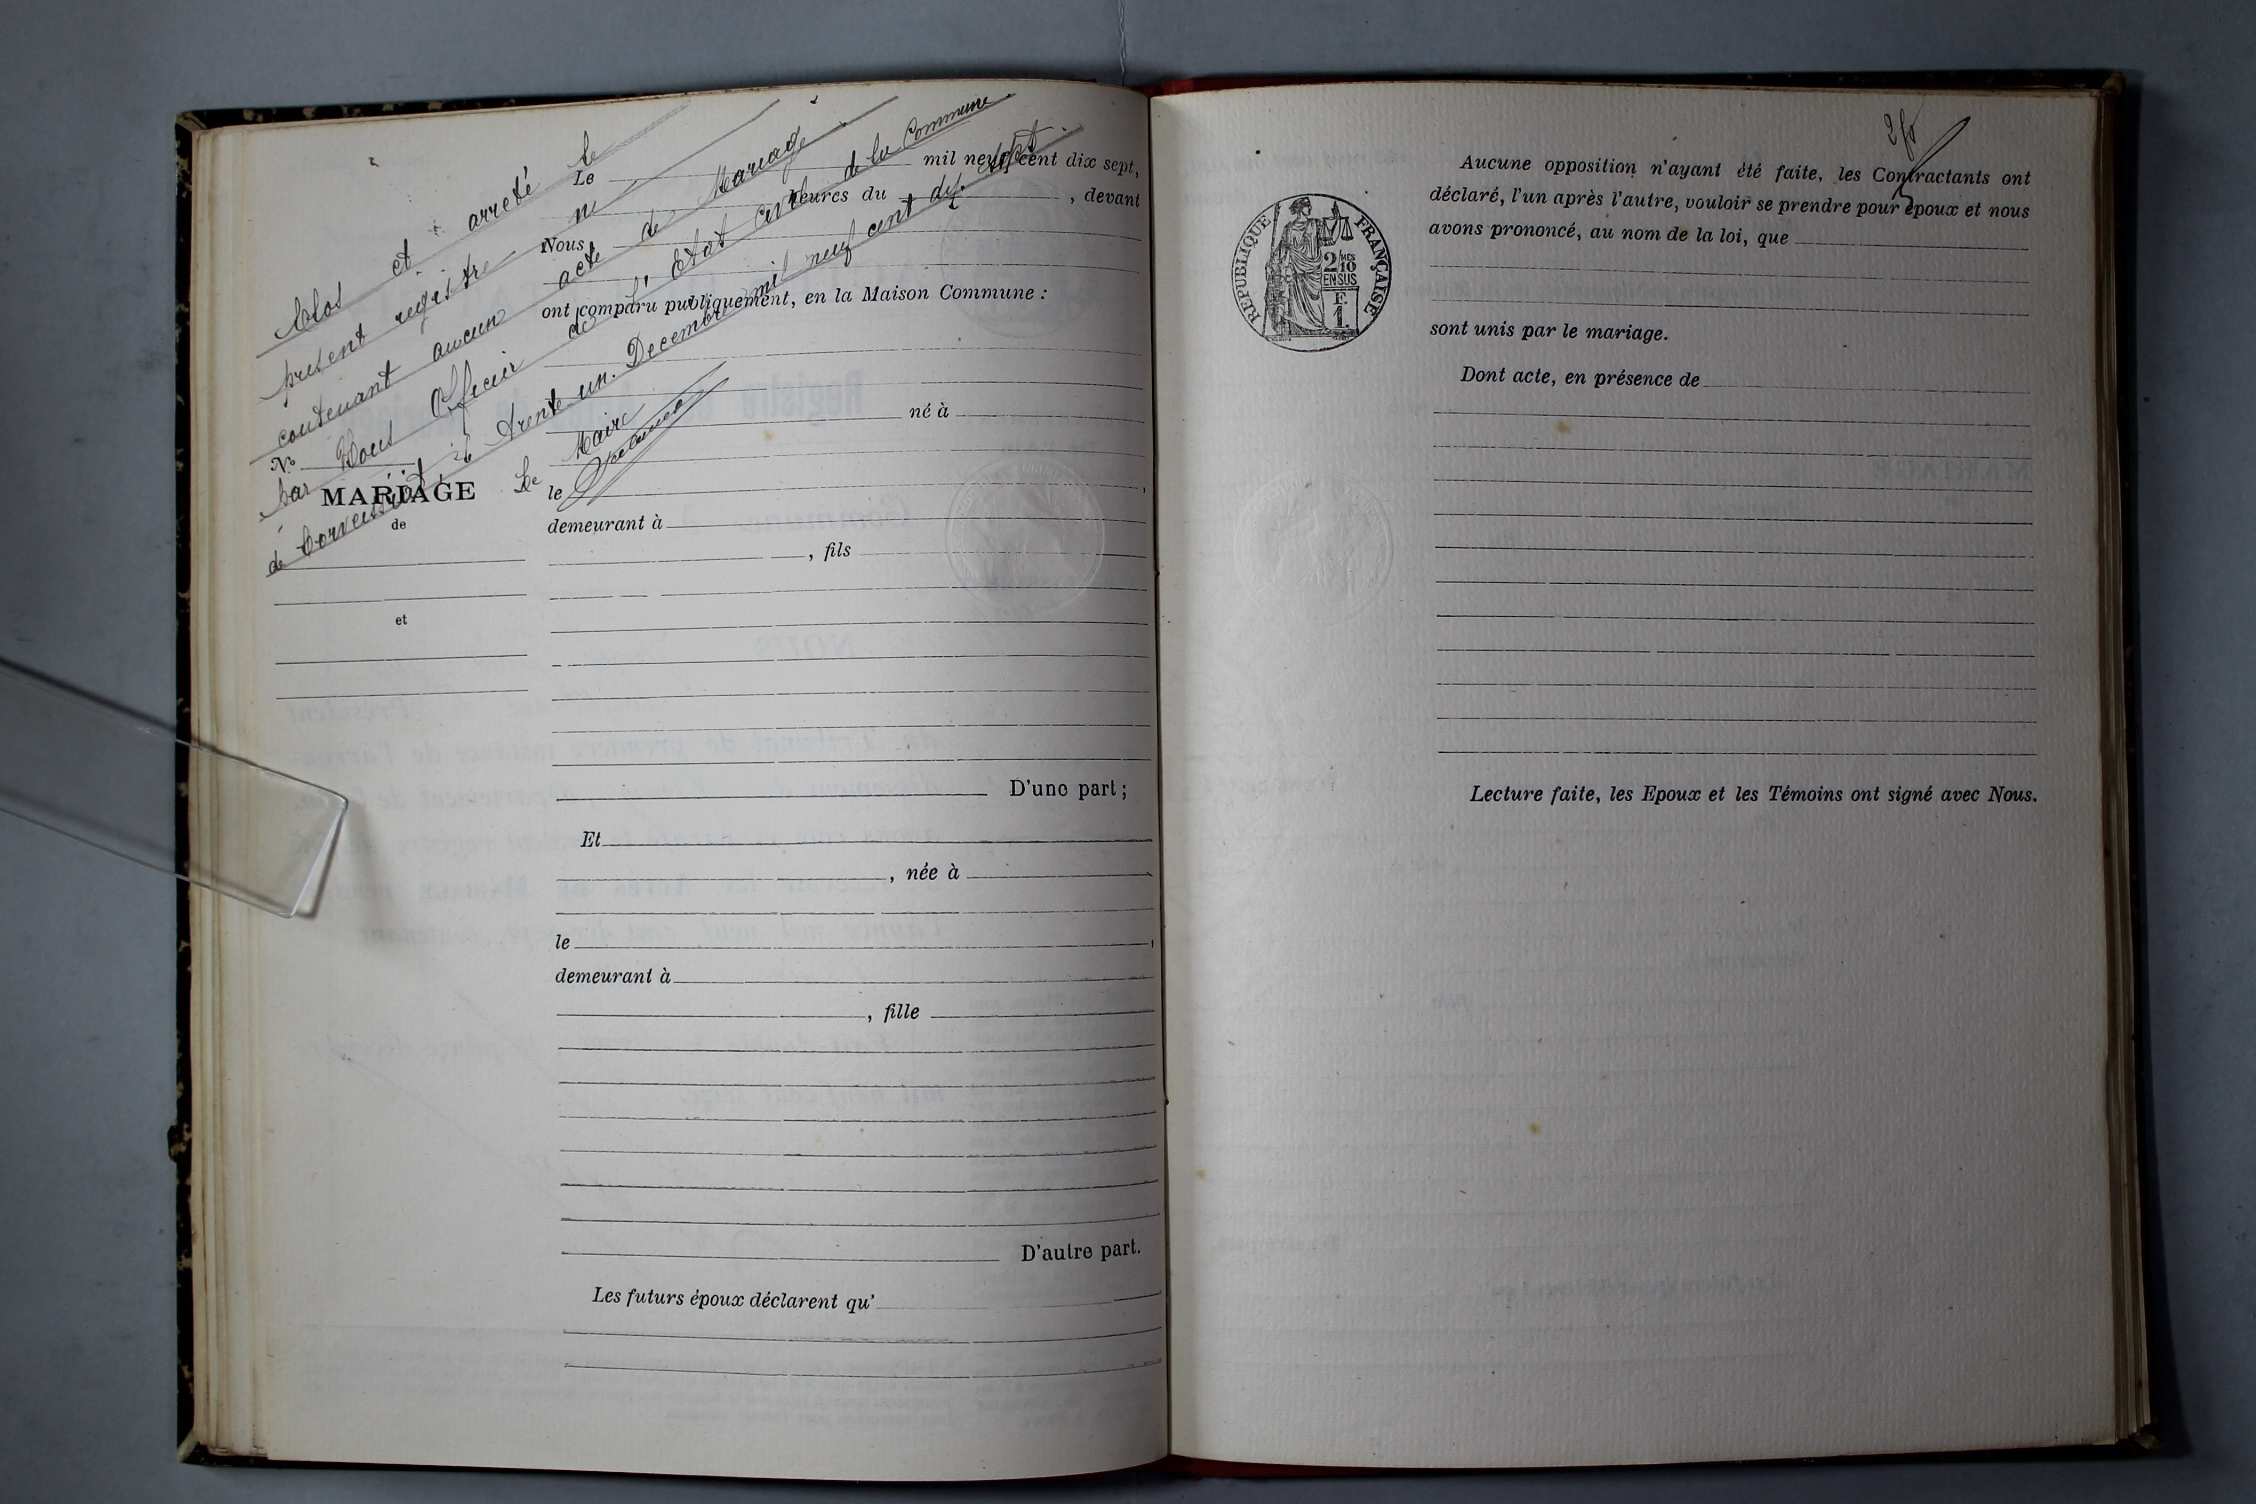 Clos et arreté le
présent registre ni
contenant aucun acte de Mariage
par Nous Officier de l'Etat civil de la Commune
de le trente un. Decembre mil neuf cent dix sept.
Le Maire
Le mil neuf cent dix sept,
heures du , devant
Nous
ont comparu publiquement, en la Maison Commune :
né à
le
demeurant à
, fils
D'une part ;
Et
, née à
le
demeurant à
, fille
D'autre part.
Les futurs époux déclarent qu'
No
MARIAGE
de
et
2 fo
REPUBLIQUE FRANÇAISE
2/MES
10
EN SUS
F.
1.
Aucune opposition n'ayant été faite, les Contractants ont
déclaré, l'un après l'autre, vouloir se prendre pour époux et nous
avons prononcé, au nom de la loi, que
sont unis par le mariage.
Dont acte, en présence de
Lecture faite, les Epoux et les Témoins ont signé avec Nous.